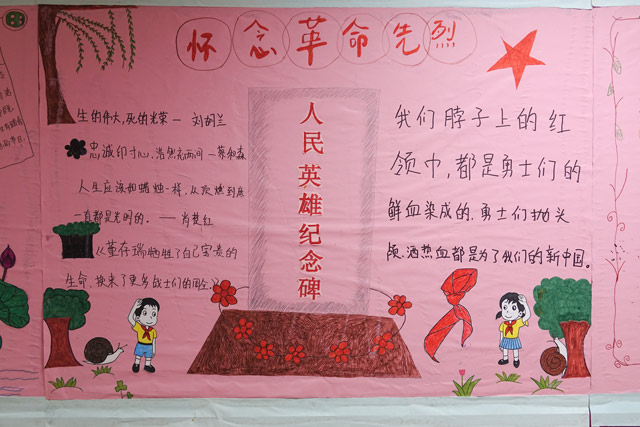 怀念革命先烈
生的伟大,死的光荣 — 刘胡兰
忠诚印寸心,浩然充两间 — 蔡和森
人生应该如蜡烛一样,从顶燃到底
一直都是光明的. — 肖楚女
从董存瑞牺牲了自己宝贵的
生命,换来了更多战士们的
人民英雄纪念碑
我们脖子上的红
领巾,都是勇士们的
鲜血染成的.勇士们抛头
颅.洒热血都是为了我们的新中国。